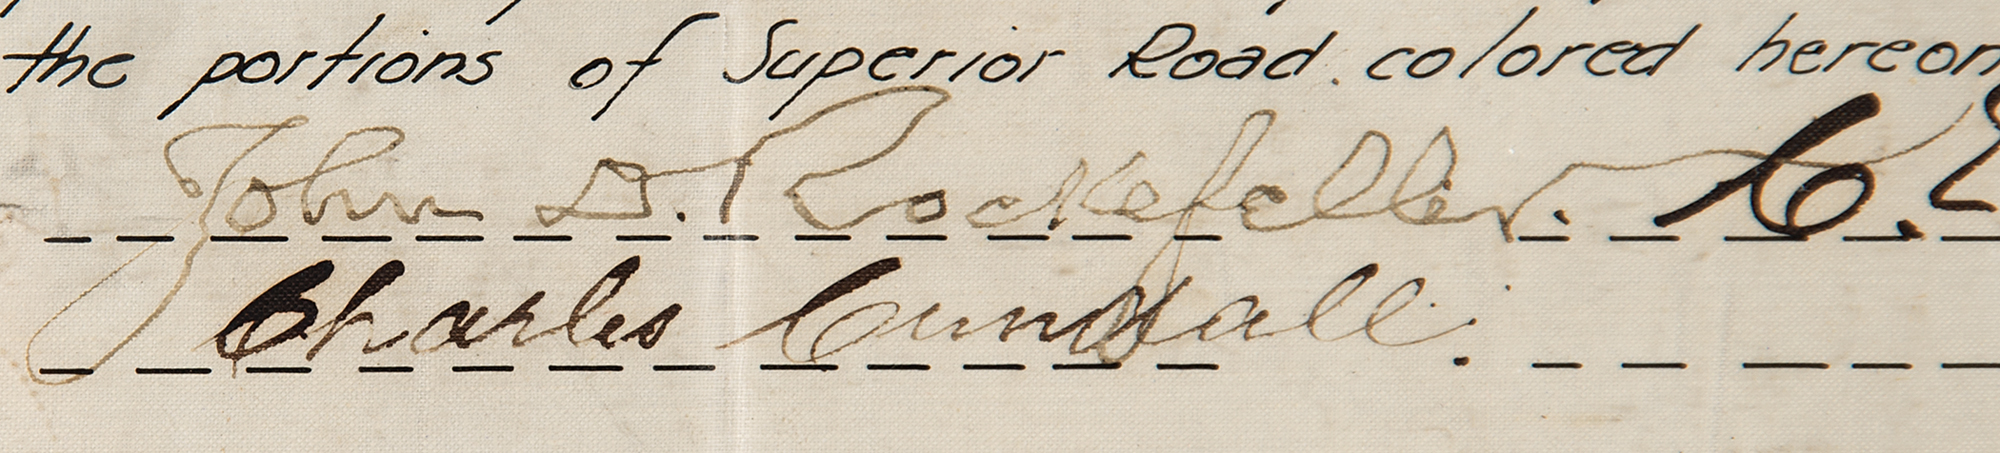 the portions of Superior Road colored hereon
John D. Rockefeller. C.
Charles Cundall.